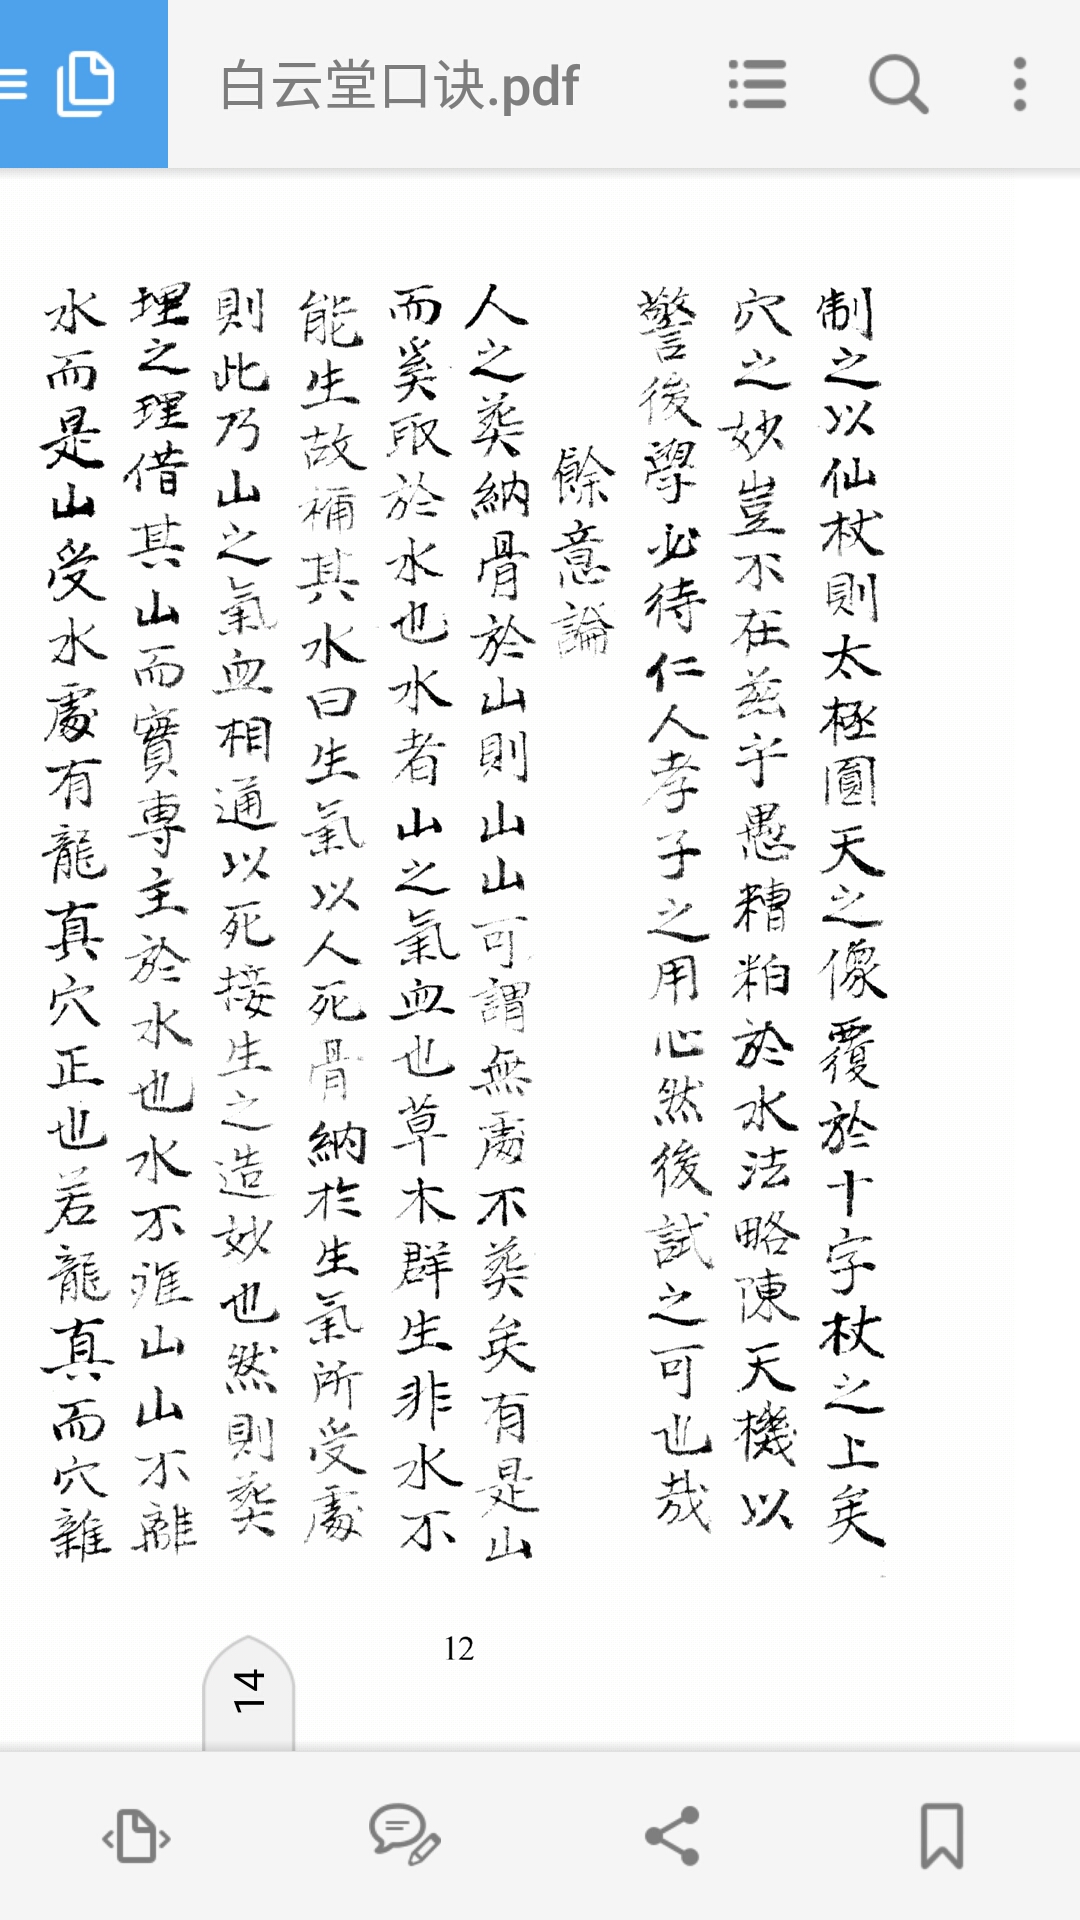 白云堂口诀.pdf
制之以仙杖則太極圓天之像覆於十字杖之上矣
穴之妙豈不在茲乎愚糟粕於水法略陳天機以
警後學必待仁人孝子之用心然後試之可也哉
餘意論
人之葬納骨於山則山山可謂無處不葬矣有是山
而奚取於水也水者山之氣血也草木群生非水不
能生故稱其水曰生氣以人死骨納於生氣所受處
則此乃山之氣血相通以死接生之造妙也然則葬
理之理借其山而實專主於水也水不離山山不離
水而是山受水處有龍真穴正也若龍真而穴雜
12
14